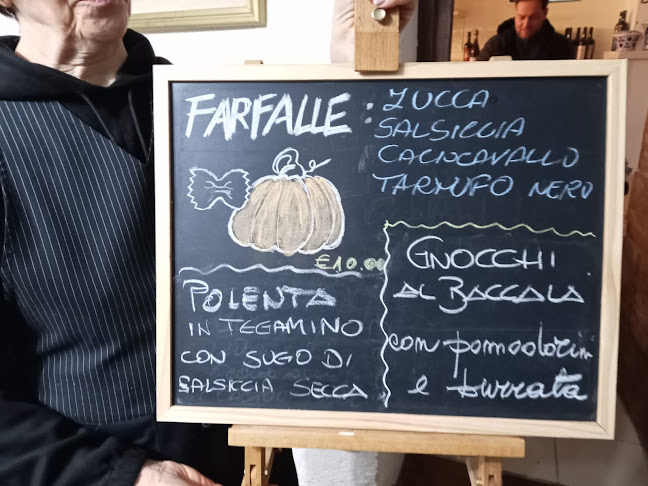 FARFALLE: ZUCCA
SALSICCIA
CACIOCAVALLO
TARTUFO NERO
€10.00
POLENTA
IN TEGAMINO
CON SUGO DI
SALSICCIA SECCA
GNOCCHI
AL BACCALA
con pomodorin
e burrata